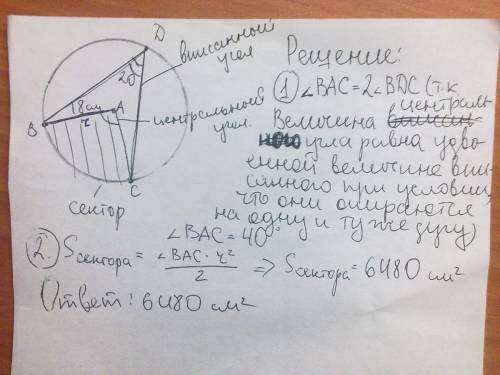 D
вписанный
угол
20°
18см
A
r
B
центральный
угол.
C
сектор
Рещение:
① ∠BAC = 2∠BDC (т.к
Величина централь
ного угла равна удво-
енной величине впи-
санного при условии,
что они опираются
на одну и ту же дугу)
∠BAC = 40°
2. Sсектора = ∠BAC · r² / 2 => Sсектора = 6480 см²
Ответ: 6480 см²